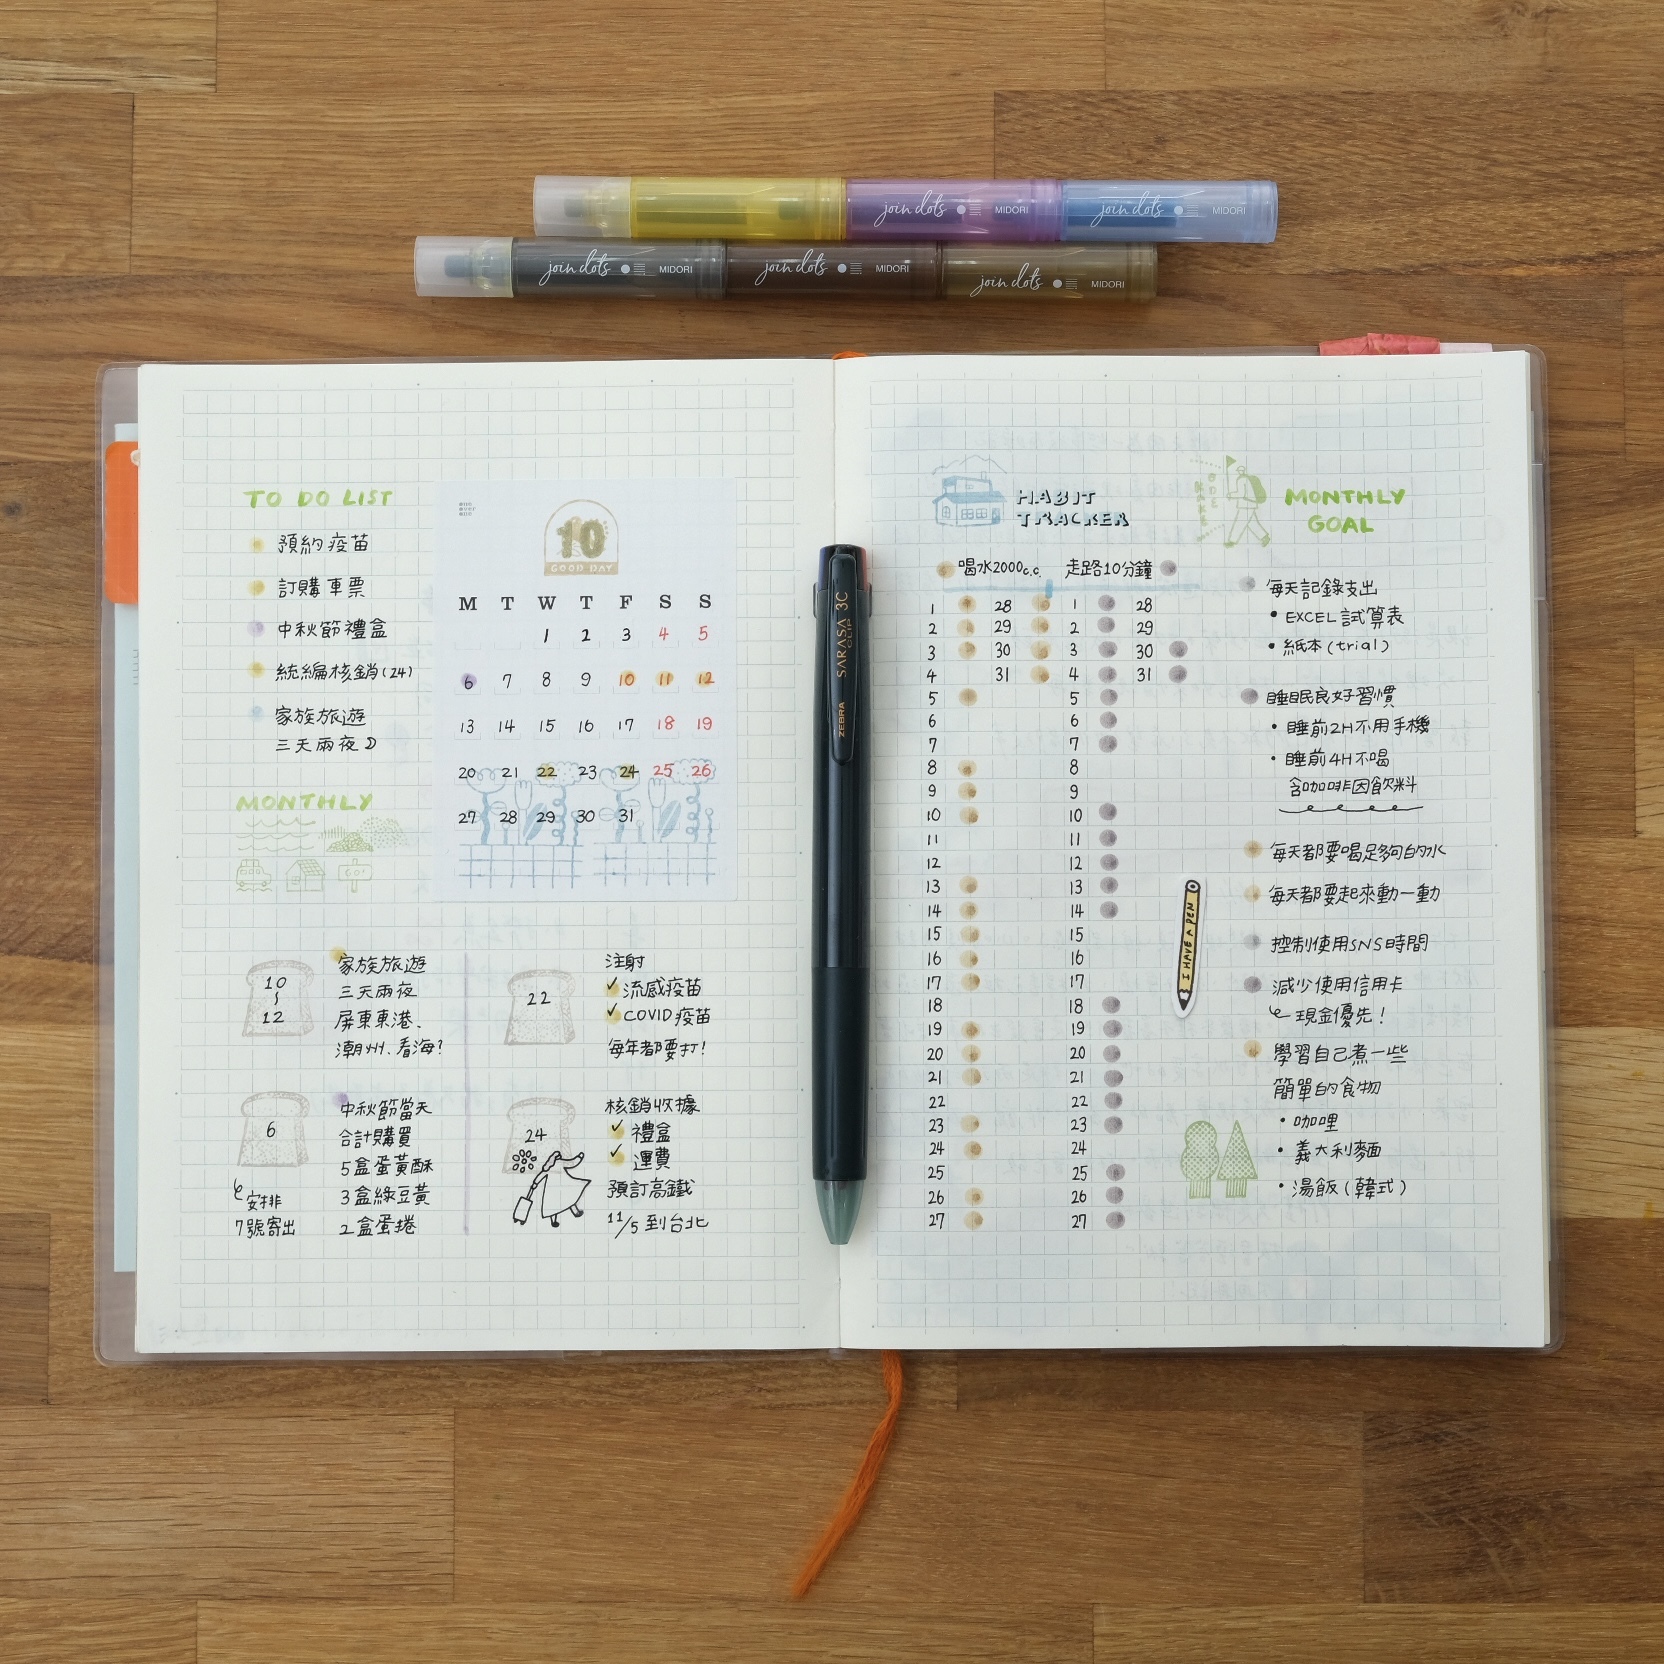 join dots MIDORI
join dots MIDORI
join dots MIDORI
join dots MIDORI
join dots MIDORI
TO DO LIST
預約疫苗
訂購車票
中秋節禮盒
統編核銷(24)
家族旅遊
三天兩夜
MONTHLY
10
GOOD DAY
M T W T F S S
1 2 3 4 5
6 7 8 9 10 11 12
13 14 15 16 17 18 19
20 21 22 23 24 25 26
27 28 29 30 31
10
~
12
家族旅遊
三天兩夜
屏東東港、
潮州、看海?
22
注射
✓流感疫苗
✓COVID疫苗
每年都要打!
6
安排
7號寄出
中秋節當天
合計購買
5盒蛋黃酥
3盒綠豆黃
2盒蛋捲
24
核銷收據
✓禮盒
✓運費
預訂高鐵
11/5 到台北
SARASA 3C
CLIP
ZEBRA
HABIT
TRACKER
喝水2000c.c. 走路10分鐘
1 28 1 28
2 29 2 29
3 30 3 30
4 31 4 31
5 5
6 6
7 7
8 8
9 9
10 10
11 11
12 12
13 13
14 14
15 15
16 16
17 17
18 18
19 19
20 20
21 21
22 22
23 23
24 24
25 25
26 26
27 27
MONTHLY
GOAL
每天記錄支出
• EXCEL試算表
• 紙本(trial)
睡眠良好習慣
• 睡前2H不用手機
• 睡前4H不喝
含咖啡因飲料
每天都要喝足夠的水
每天都要起來動一動
控制使用SNS時間
減少使用信用卡
現金優先!
學習自己煮一些
簡單的食物
• 咖哩
• 義大利麵
• 湯飯(韓式)
I HAVE A PEN